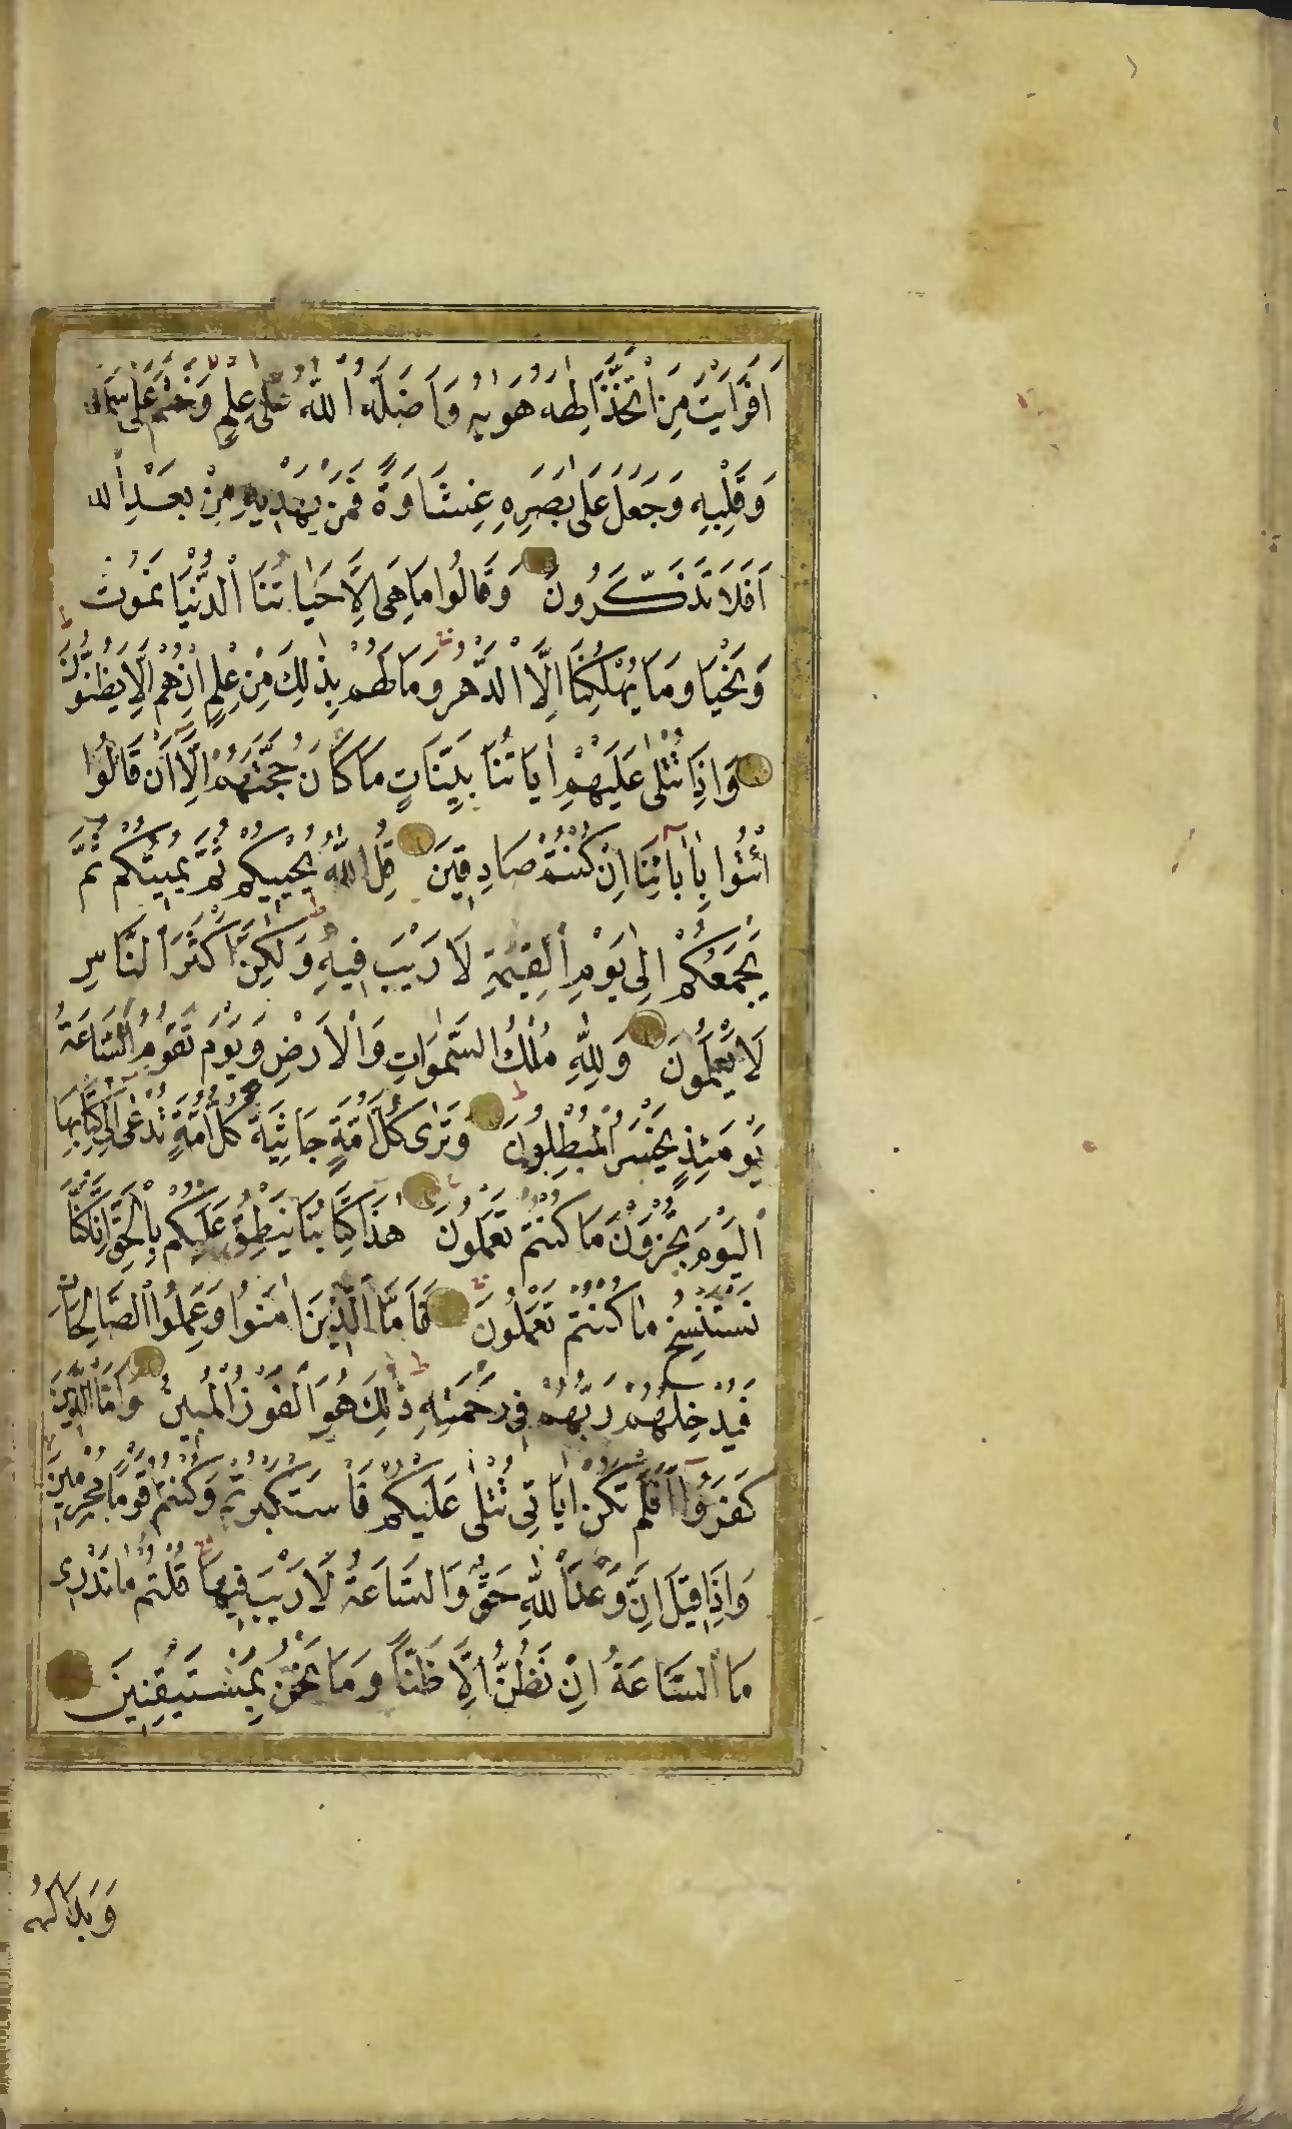 اَفَرَاَيْتَ مَنِ اتَّخَذَ اِلٰهَهُ هَوٰيهُ وَاَضَلَّهُ اللّٰهُ عَلٰى عِلْمٍ وَخَتَمَ عَلٰى سَمْعِه
وَقَلْبِهِ وَجَعَلَ عَلٰى بَصَرِهِ غِشَاوَةً فَمَنْ يَهْدِيهِ مِنْ بَعْدِ اللّٰهِ
اَفَلَا تَذَكَّرُونَ وَقَالُوا مَا هِىَ اِلَّا حَيَاتُنَا الدُّنْيَا نَمُوتُ
وَنَحْيَا وَمَا يُهْلِكُنَا اِلَّا الدَّهْرُ وَمَا لَهُمْ بِذٰلِكَ مِنْ عِلْمٍ اِنْ هُمْ اِلَّا يَظُنُّونَ
وَاِذَا تُتْلٰى عَلَيْهِمْ اٰيَاتُنَا بَيِّنَاتٍ مَا كَانَ حُجَّتَهُمْ اِلَّا اَنْ قَالُوا
ائْتُوا بِاٰبَائِنَا اِنْ كُنْتُمْ صَادِقِينَ قُلِ اللّٰهُ يُحْيِيكُمْ ثُمَّ يُمِيتُكُمْ ثُمَّ
يَجْمَعُكُمْ اِلٰى يَوْمِ الْقِيٰمَةِ لَا رَيْبَ فِيهِ وَلٰكِنَّ اَكْثَرَ النَّاسِ
لَا يَعْلَمُونَ وَلِلّٰهِ مُلْكُ السَّمٰوَاتِ وَالْاَرْضِ وَيَوْمَ تَقُومُ السَّاعَةُ
يَوْمَئِذٍ يَخْسَرُ الْمُبْطِلُونَ وَتَرٰى كُلَّ اُمَّةٍ جَاثِيَةً كُلُّ اُمَّةٍ تُدْعٰى اِلٰى كِتَابِهَا
اَلْيَوْمَ تُجْزَوْنَ مَا كُنْتُمْ تَعْمَلُونَ هٰذَا كِتَابُنَا يَنْطِقُ عَلَيْكُمْ بِالْحَقِّ اِنَّا كُنَّا
نَسْتَنْسِخُ مَا كُنْتُمْ تَعْمَلُونَ فَاَمَّا الَّذِينَ اٰمَنُوا وَعَمِلُوا الصَّالِحَاتِ
فَيُدْخِلُهُمْ رَبُّهُمْ فِى رَحْمَتِهِ ذٰلِكَ هُوَ الْفَوْزُ الْمُبِينُ وَاَمَّا الَّذِينَ
كَفَرُوا اَفَلَمْ تَكُنْ اٰيَاتِى تُتْلٰى عَلَيْكُمْ فَاسْتَكْبَرْتُمْ وَكُنْتُمْ قَوْمًا مُجْرِمِينَ
وَاِذَا قِيلَ اِنَّ وَعْدَ اللّٰهِ حَقٌّ وَالسَّاعَةُ لَا رَيْبَ فِيهَا قُلْتُمْ مَا نَدْرِى
مَا السَّاعَةُ اِنْ نَظُنُّ اِلَّا ظَنًّا وَمَا نَحْنُ بِمُسْتَيْقِنِينَ
وَبَدَا لَهُمْ